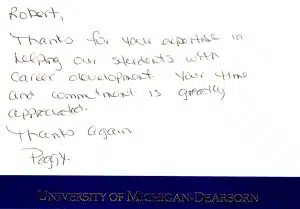 Robert,
Thanks for your expertise in
helping our students with
career development. Your time
and commitment is greatly
appreciated.
Thanks again
Peggy.
UNIVERSITY OF MICHIGAN-DEARBORN